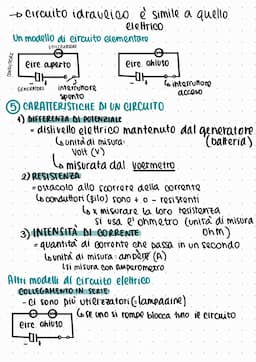 → circuito idraulico è simile a quello
elettrico
Un modello di circuito elementare
UTILIZZATORE
CONDUTTORE
circ aperto
circ chiuso
GENERATORE
interruttore
spento
↳ interruttore
acceso
⑤ CARATTERISTICHE DI UN CIRCUITO
1) DIFFERENZA DI POTENZIALE
= dislivello elettrico mantenuto dal generatore
(batteria)
↳ unità di misura:
Volt (V)
↳ misurata dal voltmetro
2) RESISTENZA
= ostacolo allo scorrere della corrente
↳ conduttori (filo) sono + o - resistenti
↳ x misurare la loro resistenza
si usa l' ohmetro (unità di misura
ohm)
3) INTENSITÀ DI CORRENTE
= quantità di corrente che passa in un secondo
↳ unità di misura: ampere (A)
↳ si misura con amperometro
Altri modelli di circuito elettrico
COLLEGAMENTO IN SERIE
- ci sono più utilizzatori (lampadine)
circ chiuso
↳ se uno si rompe blocca tutto il circuito